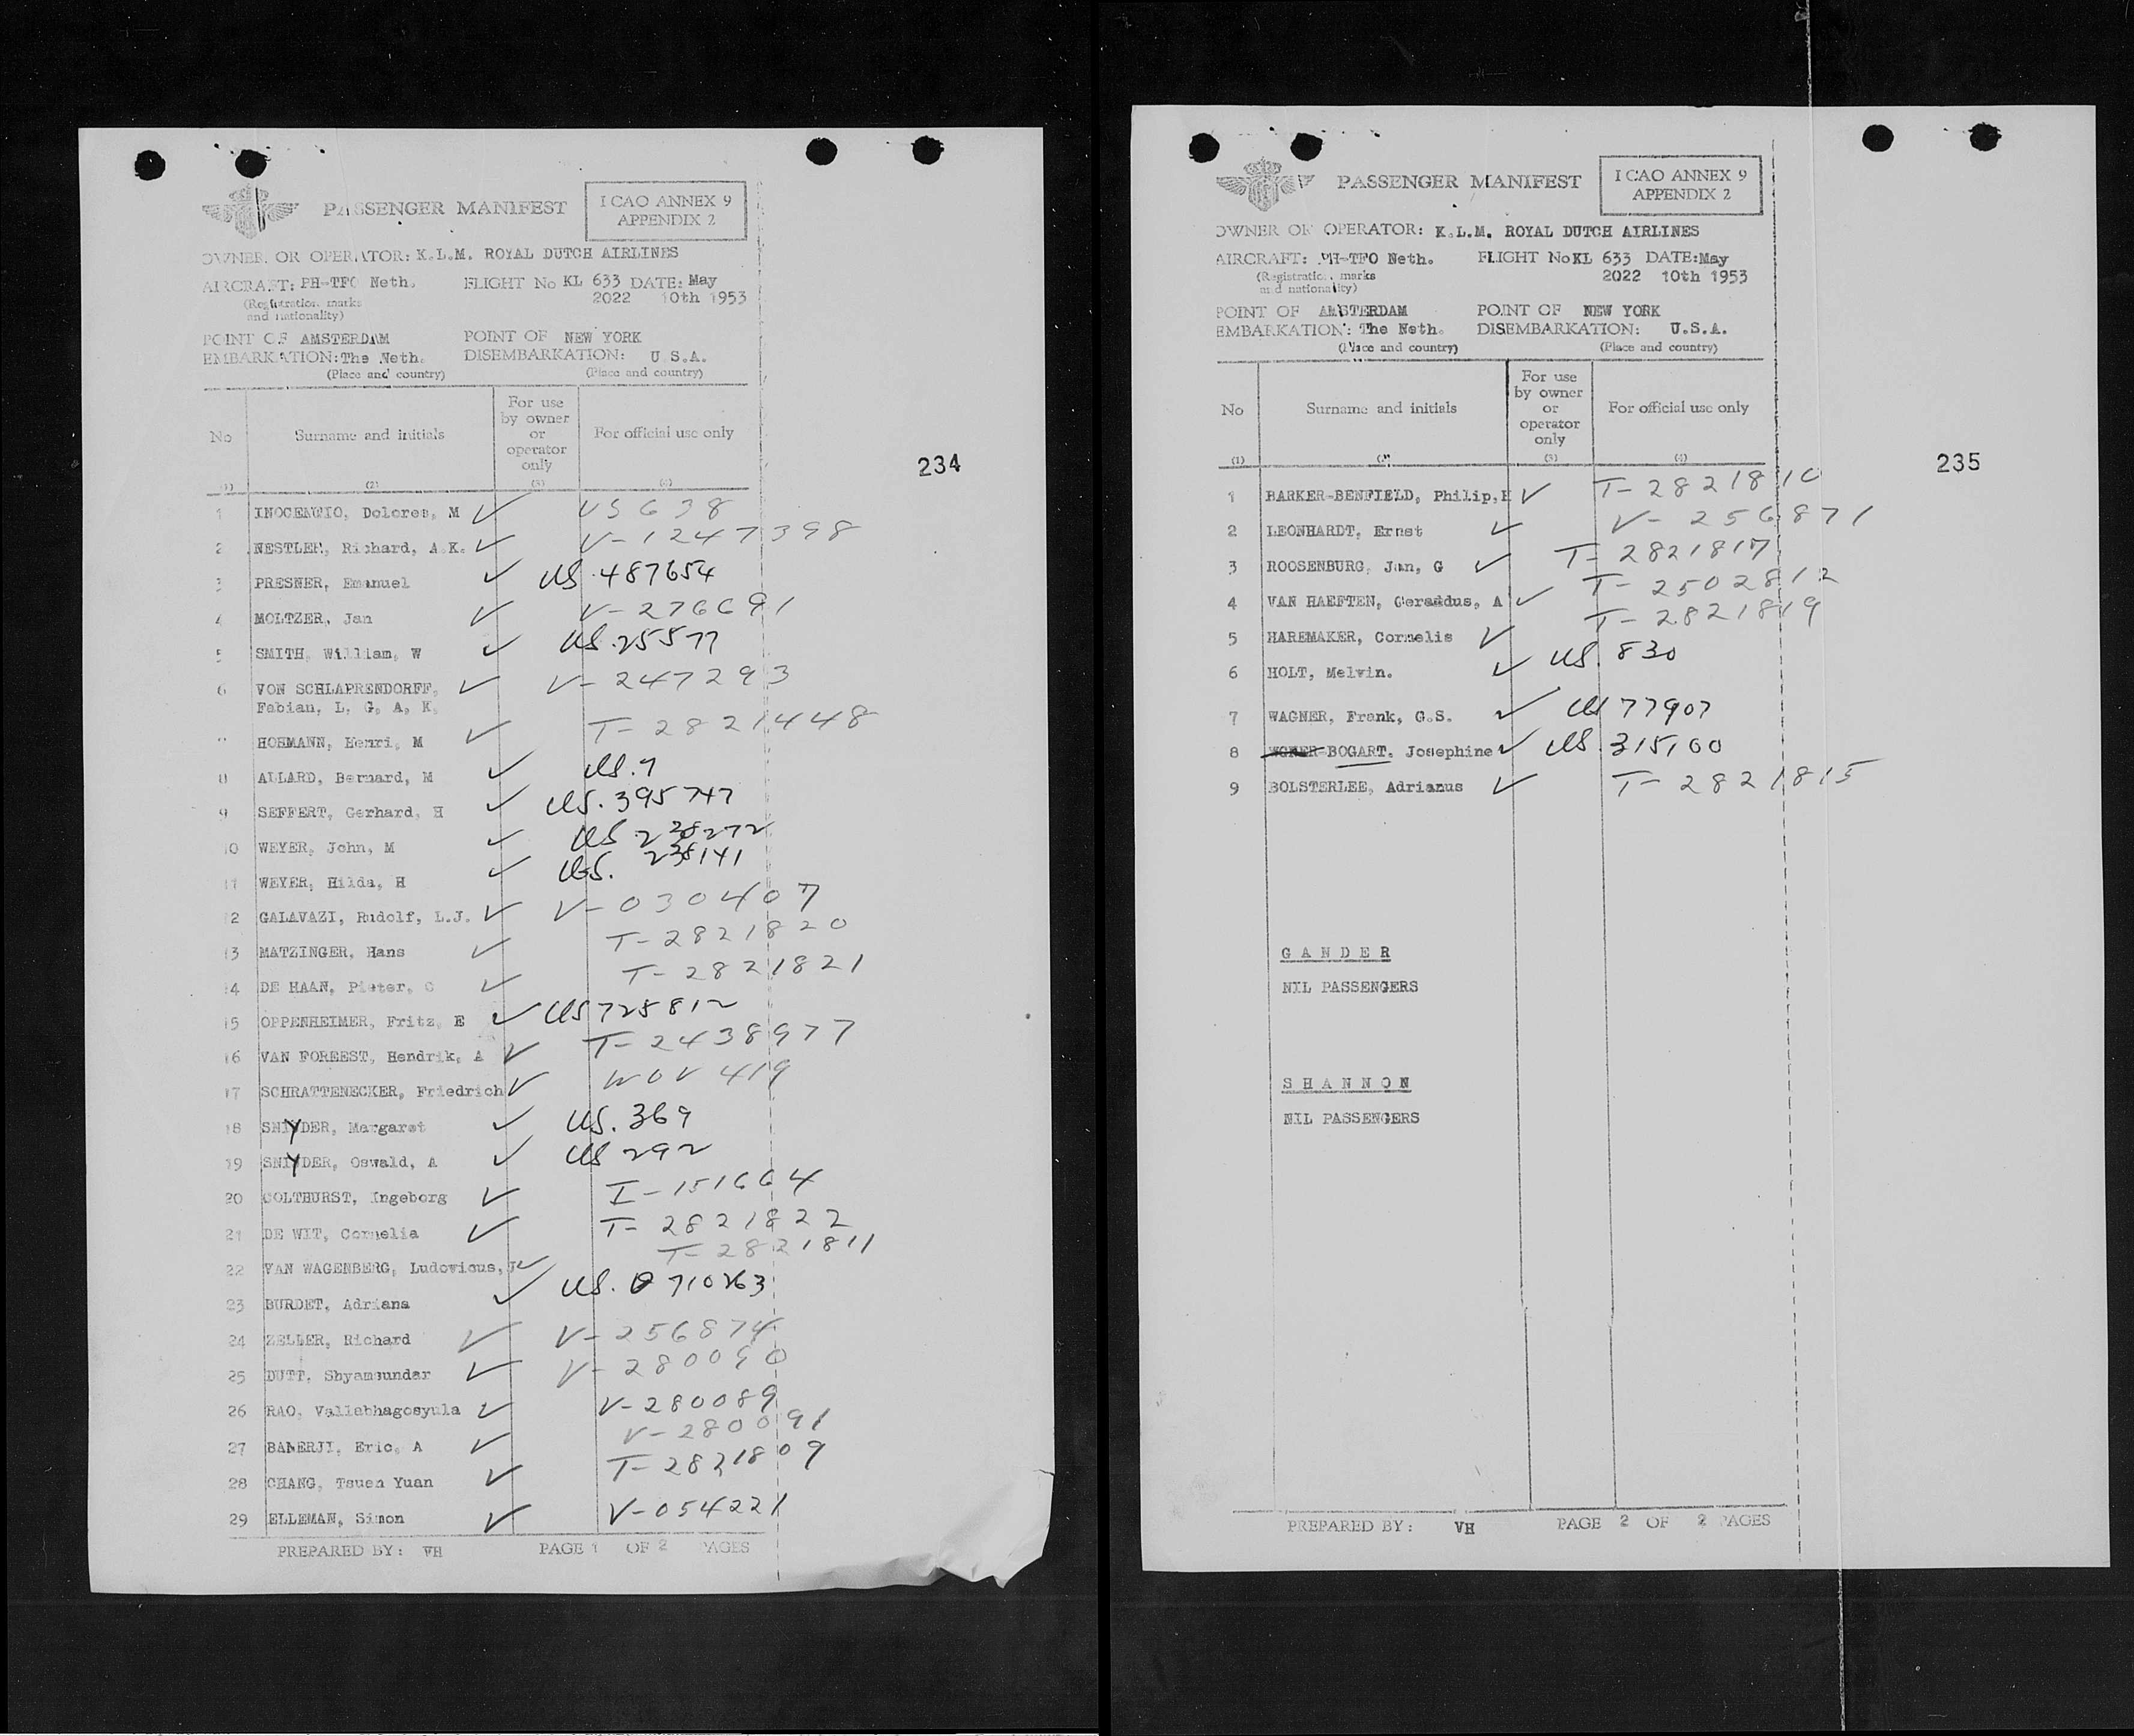 PASSENGER MANIFEST
I CAO ANNEX 9
APPENDIX 2
OWNER OR OPERATOR: K.L.M. ROYAL DUTCH AIRLINES
AIRCRAFT: PH-TFO Neth. FLIGHT No KL 633 DATE: May
(Registration marks 2022 10th 1953
and nationality)
POINT OF AMSTERDAM POINT OF NEW YORK
EMBARKATION: The Neth. DISEMBARKATION: U.S.A.
(Place and country) (Place and country)
No Surname and initials For use by owner or operator only For official use only
(1) (2) (3) (4)
234
1 INOCENCIO, Dolores, M ✓ US 638
2 NESTLER, Richard, A.K. ✓ V-1247398
3 PRESNER, Emanuel ✓ US.487654
4 MOLTZER, Jan ✓ V-276691
5 SMITH, William, W ✓ US.25577
6 VON SCHLAPRENDORFF, ✓ V-247293
Fabian, L. G. A. K.
7 HOHMANN, Henri, M ✓ T-2821448
8 ALLARD, Bernard, M ✓ US.7
9 SEFFERT, Gerhard, H ✓ US.395747
10 WEYER, John, M ✓ US
11 WEYER, Hilda, H ✓ US.
12 GALAVAZI, Rudolf, L.J. ✓ V-030407
13 MATZINGER, Hans ✓ T-2821820
14 DE HAAN, Pieter, C ✓ T-2821821
15 OPPENHEIMER, Fritz, E ✓ US 725812
16 VAN FOREEST, Hendrik, A ✓ T-2438977
17 SCHRATTENECKER, Friedrich ✓ WOV 419
18 SNYDER, Margaret ✓ US.369
19 SNYDER, Oswald, A ✓ US 292
20 COLTHURST, Ingeborg ✓ I-151664
21 DE WIT, Cornelia ✓ T-2821822
22 VAN WAGENBERG, Ludovicus, J ✓ T-2821811
23 BURDET, Adriana ✓ US.
24 ZELLER, Richard ✓ V-256874
25 DUTT, Shyamsundar ✓ V-280090
26 RAO, Vallabhagosyula ✓ V-280089
27 BANERJI, Eric, A ✓ V-280091
28 CHANG, Tsuen Yuan ✓ T-2821809
29 ELLEMAN, Simon ✓ V-054221
PREPARED BY: VH PAGE 1 OF 2 PAGES
PASSENGER MANIFEST
I CAO ANNEX 9
APPENDIX 2
OWNER OR OPERATOR: K.L.M. ROYAL DUTCH AIRLINES
AIRCRAFT: PH-TFO Neth. FLIGHT No KL 633 DATE: May
(Registration marks 2022 10th 1953
and nationality)
POINT OF AMSTERDAM POINT OF NEW YORK
EMBARKATION: The Neth. DISEMBARKATION: U.S.A.
(Place and country) (Place and country)
No Surname and initials For use by owner or operator only For official use only
(1) (2) (3) (4)
235
1 BARKER-BENFIELD, Philip, H ✓ T-2821810
2 LEONHARDT, Ernst ✓ V-256871
3 ROOSENBURG, Jan, G ✓ T-2821817
4 VAN HAEFTEN, Geraddus, A ✓ T-2502812
5 HAREMAKER, Cornelis ✓ T-2821819
6 HOLT, Melvin. ✓ US.830
7 WAGNER, Frank, G.S. ✓ US 77907
8 BOGART, Josephine ✓ US.315100
9 BOLSTERLEE, Adrianus ✓ T-2821815
GANDER
NIL PASSENGERS
SHANNON
NIL PASSENGERS
PREPARED BY: VH PAGE 2 OF 2 PAGES